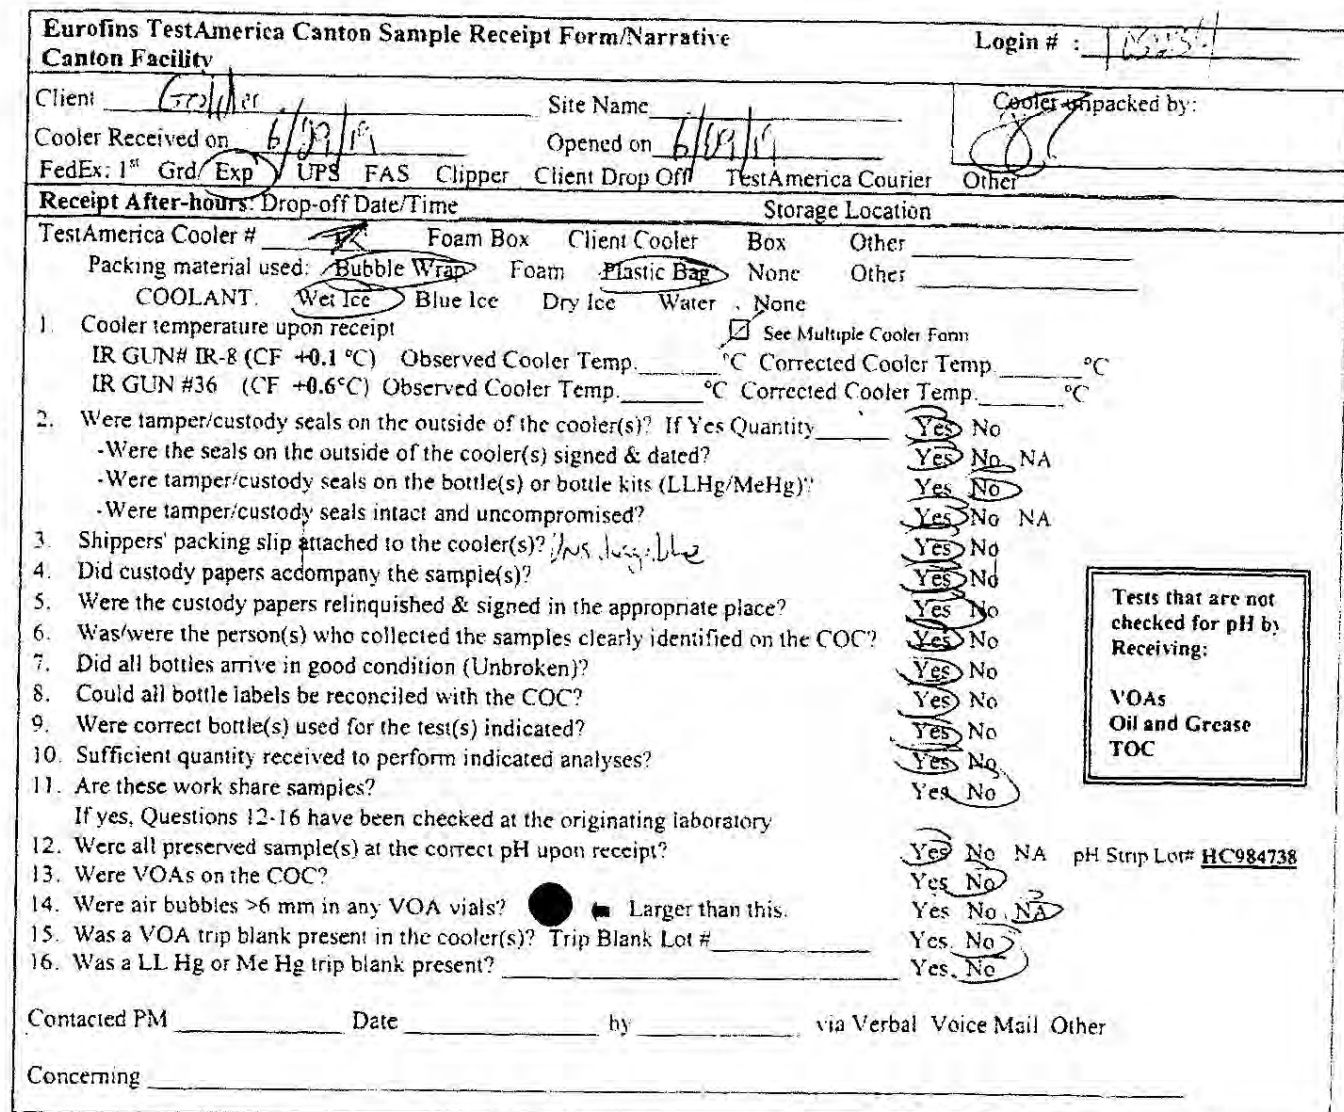 Eurofins TestAmerica Canton Sample Receipt Form/Narrative Login # :
Canton Facility
Client Golder Site Name Cooler unpacked by:
Cooler Received on 6/ /19 Opened on 6/ /19
FedEx: 1st Grd Exp UPS FAS Clipper Client Drop Off TestAmerica Courier Other
Receipt After-hours: Drop-off Date/Time Storage Location
TestAmerica Cooler # Foam Box Client Cooler Box Other
Packing material used: Bubble Wrap Foam Plastic Bag None Other
COOLANT. Wet Ice Blue Ice Dry Ice Water None
1. Cooler temperature upon receipt See Multiple Cooler Form
IR GUN# IR-8 (CF +0.1 °C) Observed Cooler Temp. °C Corrected Cooler Temp. °C
IR GUN #36 (CF +0.6°C) Observed Cooler Temp. °C Corrected Cooler Temp. °C
2. Were tamper/custody seals on the outside of the cooler(s)? If Yes Quantity Yes No
-Were the seals on the outside of the cooler(s) signed & dated? Yes No NA
-Were tamper/custody seals on the bottle(s) or bottle kits (LLHg/MeHg)? Yes No
-Were tamper/custody seals intact and uncompromised? Yes No NA
3. Shippers' packing slip attached to the cooler(s)? Yes No
4. Did custody papers accompany the sample(s)? Yes No
5. Were the custody papers relinquished & signed in the appropriate place? Yes No
6. Was/were the person(s) who collected the samples clearly identified on the COC? Yes No
7. Did all bottles arrive in good condition (Unbroken)? Yes No
8. Could all bottle labels be reconciled with the COC? Yes No
9. Were correct bottle(s) used for the test(s) indicated? Yes No
10. Sufficient quantity received to perform indicated analyses? Yes No
11. Are these work share samples? Yes No
If yes, Questions 12-16 have been checked at the originating laboratory
12. Were all preserved sample(s) at the correct pH upon receipt? Yes No NA pH Strip Lot# HC984738
13. Were VOAs on the COC? Yes No
14. Were air bubbles >6 mm in any VOA vials? Larger than this. Yes No NA
15. Was a VOA trip blank present in the cooler(s)? Trip Blank Lot # Yes No
16. Was a LL Hg or Me Hg trip blank present? Yes No
Tests that are not
checked for pH by
Receiving:
VOAs
Oil and Grease
TOC
Contacted PM Date by via Verbal Voice Mail Other
Concerning